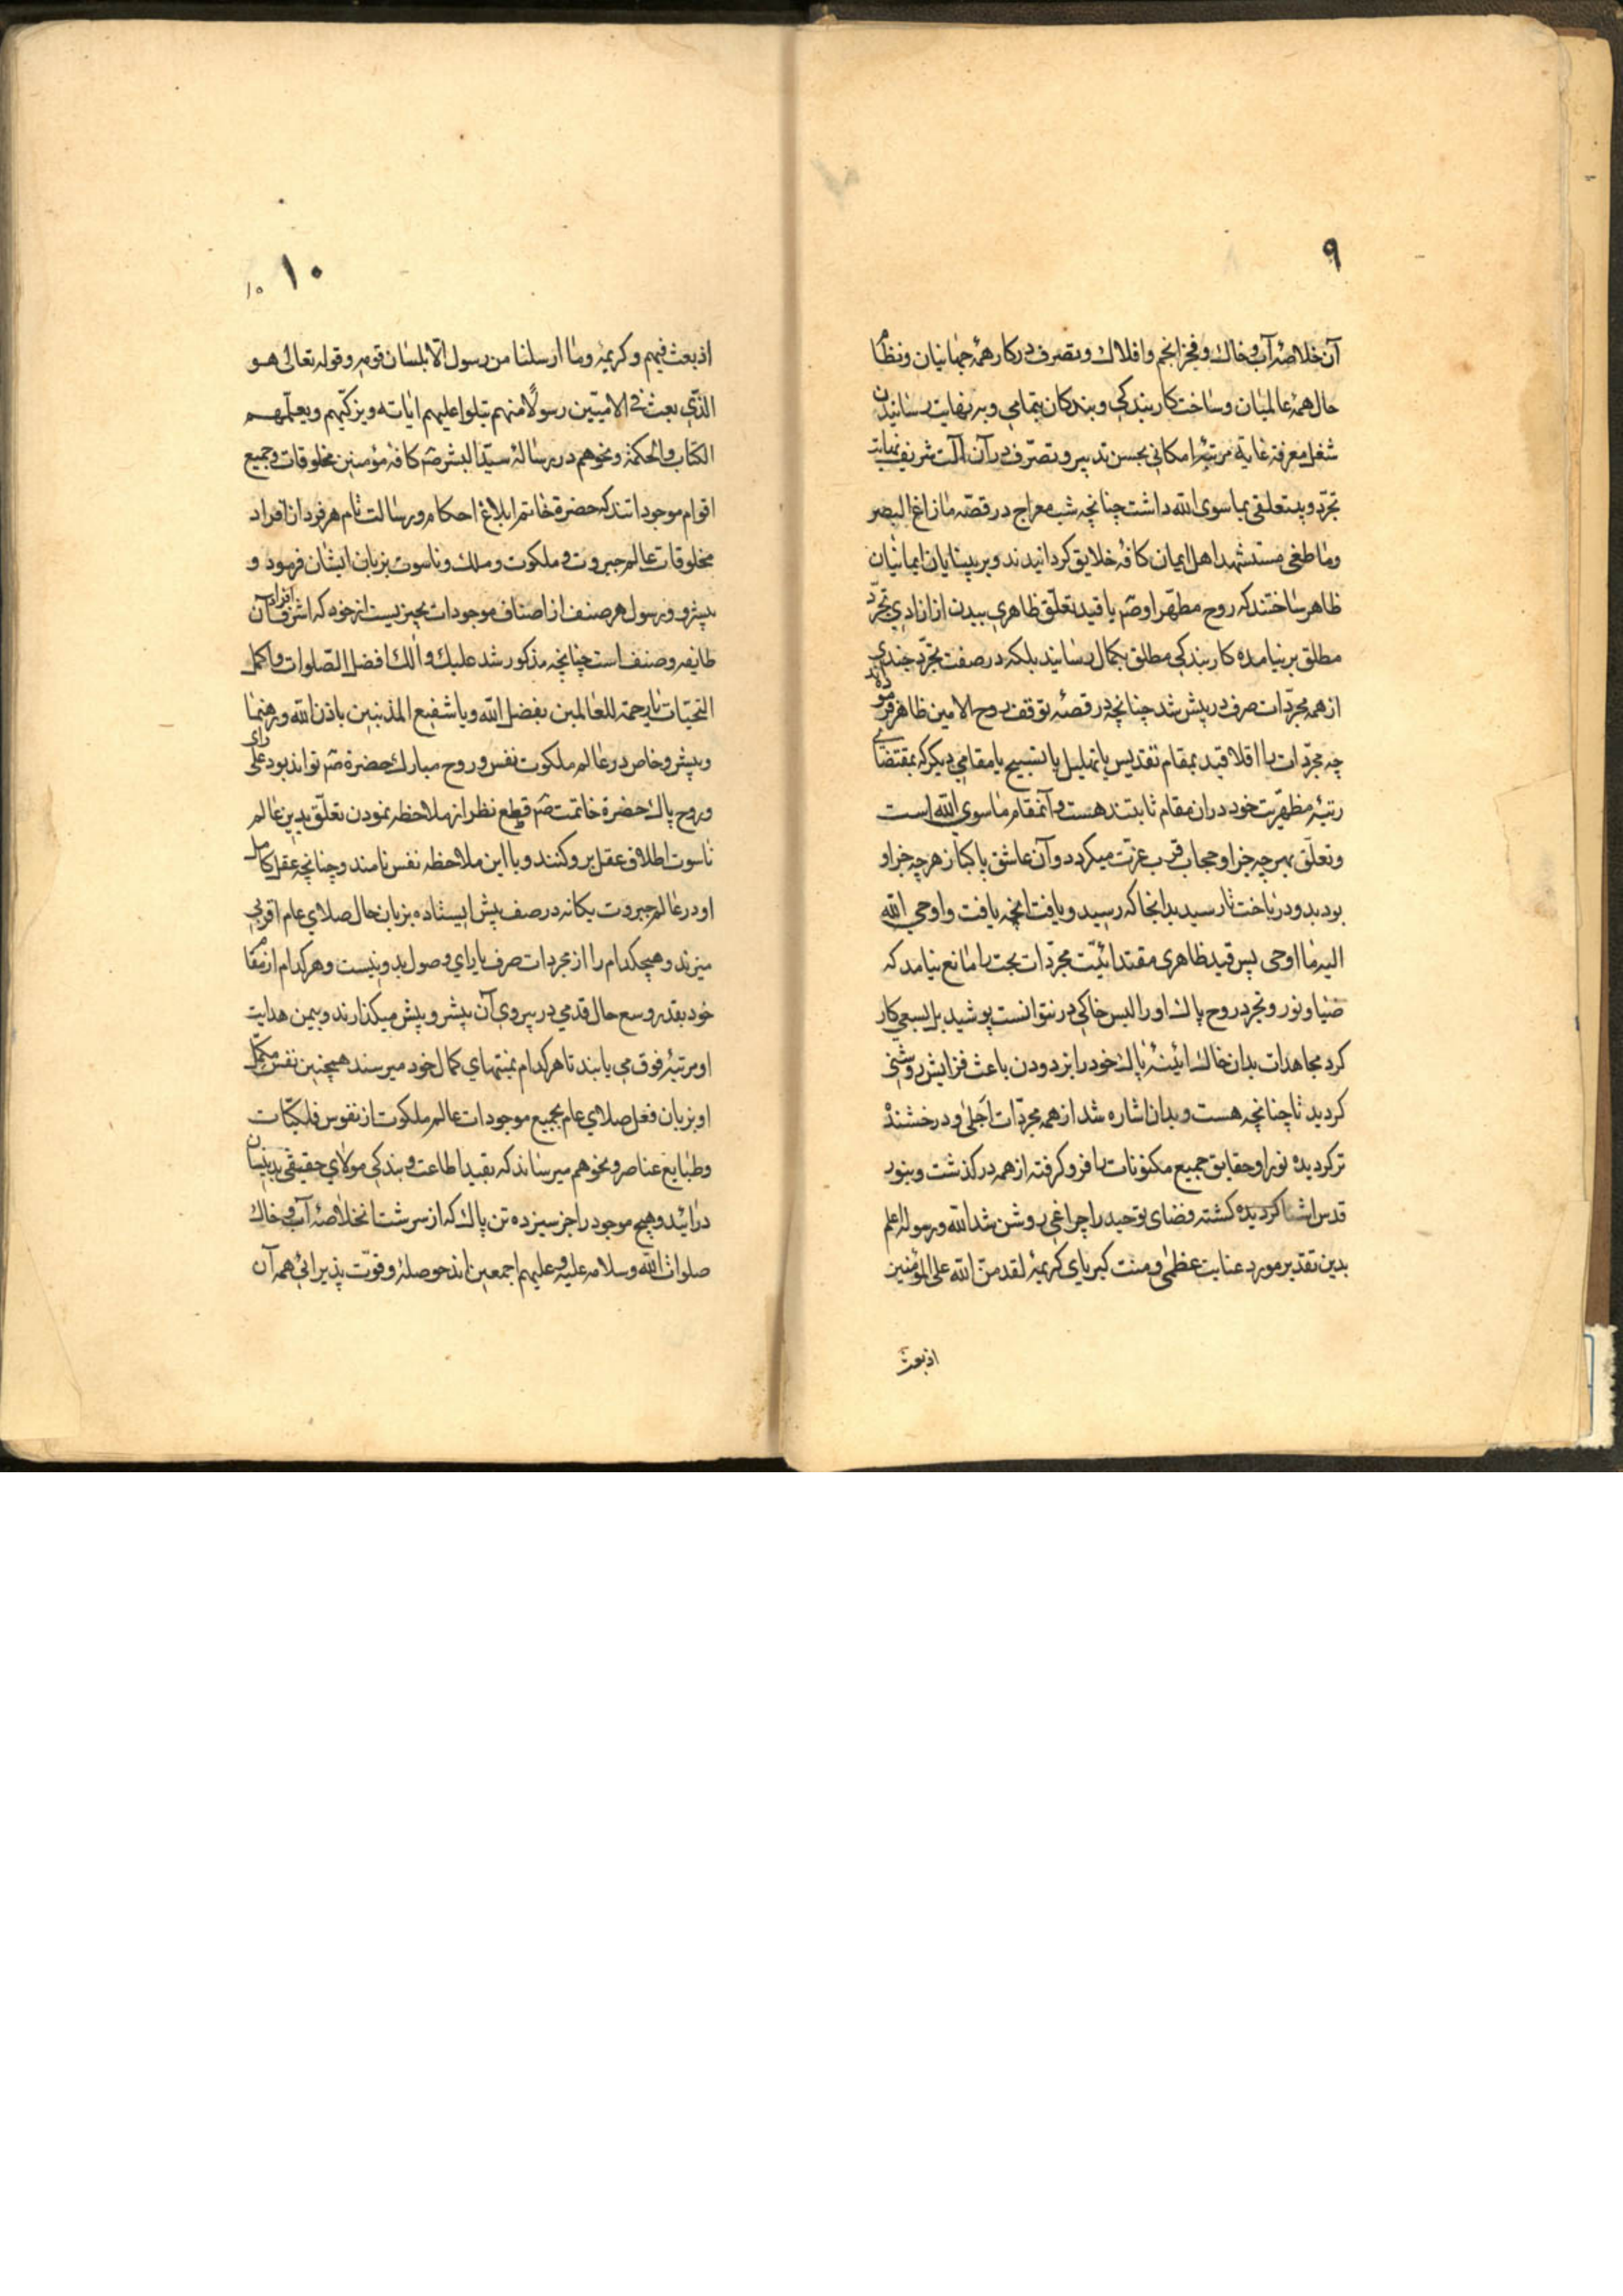 ۹
آن خلاصهٔ آب و خاک و فخر انجم و افلاک و تصرف در کار همهٔ جهانیان و نظام
حال همهٔ عالمیان و ساخت کار بندکی و بندکان بتمامی و به نهایت رسانیدن
شغل معرفة غایة مرتبهٔ امکانی بحسن تدبیر و تصرّف در آن آلت شریف نهایت
تجرّد و بیتعلقی بماسوی الله داشت چنانچه شب معراج در قصّه مازاغ البصر
وماطغی مستشهد اهل ایمان کافهٔ خلایق کردانیدند و بر بینایان ایمانیان
ظاهر ساختند که روح مطهّر او صم با قید تعلّق ظاهری ببدن از ازادی تجرّد
مطلق بر نیامده کار بندکی مطلق بکمال رسانید بلکه در صفت تجرّد چندی
از همه مجرّدات صرف در پیش شد چنانچه در قصّه توقف روح الامین ظاهر فرموده‌اند
چه مجرّدات را اقلا قید بمقام تقدیس یا تهلیل یا تسبیح یا مقامی دیکر که بمقتضای
رتبهٔ مظهریّت خود در ان مقام ثابتند هست و آنمقام ماسوی الله است
و تعلّق بهر چه جز او حجاب قرب عزت میکردد و آن عاشق پاکباز هر چه جز او
بود بدو در باخت تا رسید بدانجا که رسید و یافت انچه یافت و اوحی الله
الیه ما اوحی پس قید ظاهری مقتدائیّت مجرّدات بحت را مانع نیامد که
ضیا و نور و تجرد روح پاک او را لبس خاکی در نتوانست پوشید بل بسعی کار
کرد مجاهدات بدان خاک ائینهٔ پاک خود را بزدودن باعث فزایش روشنی
کردید تا چنانچه هست و بدان اشاره شد از همه مجرّدات اجلی و درخشنده
تر کردیده نور او حقایق جمیع مکنونات را فرو کرفته از همه در کذشت و بنور
قدس اشنا کردیده کشته فضای توحید را چراغی روشن شد الله و رسوله اعلم
بدین تقدیر مورد عنایت عظمی و منت کبریای کریمهٔ لقد منّ الله علی المؤمنین
اذ بعث
۱۰
10
اذ بعث فیهم و کریمهٔ وما ارسلنا من رسول الّا بلسان قومه و قوله تعالی هو
الذّی بعث فی الامیّین رسولًا منهم یتلوا علیهم ایاته ویزکّیهم ویعلّمهم
الکتاب والحکمة و نحوهم در رسالهٔ سیّد البشر صم کافه مؤمنین مخلوقات و جمیع
اقوام موجوداتند که حضرة خاتم ابلاغ احکام و رسالت تام هر فرد از افراد
مخلوقات عالم جبروت و ملکوت و ملک و ناسوت بزبان ایشان فرمود و
پیشرو و رسول هر صنف از اصناف موجودات بچیزیست از خود که اشرف افراد آن
طایفه و صنف است چنانچه مذکور شد علیک و الک افضل الصّلوات و اکمل
التحیّات یا رحمة للعالمین بفضل الله ویا شفیع المذنبین باذن الله و رهنمای
و پیشرو خاص در عالم ملکوت نفس و روح مبارک حضرة صم تواند بود علی رای
و روح پاک حضرة خاتمت صم قطع نظر از ملاحظه نمودن تعلّق بدین عالم
ناسوت اطلاق عقل برو کنند و با این ملاحظه نفس نامند و چنانچه عقل کامل
او در عالم جبروت یکانه در صف پیش ایستاده بزبان حال صلای عام اقربی
میزند و هیچکدام را از مجردات صرف یارای وصول بدو نیست و هر کدام از مقام
خود بقدر وسع حال قدمی در پیروی آن پیشرو پیش میکذارند و بیمن هدایت
او مرتبهٔ فوق می یابند تا هر کدام بمنتهای کمال خود میرسند همچنین نفس مکمّل
او بزبان فعل صلای عام بجمیع موجودات عالم ملکوت از نفوس فلکیّات
و طبایع عناصر و نحوهم میرساند که بقید اطاعت و بندکی مولای حقیقی بدینسان
درائید و هیچ موجود را جز سیزده تن پاک که از سرشت انخلاصهٔ آب و خاک
صلوات الله وسلامه علیه و علیهم اجمعین اند حوصلهٔ و قوّت پذیرائی همه آن